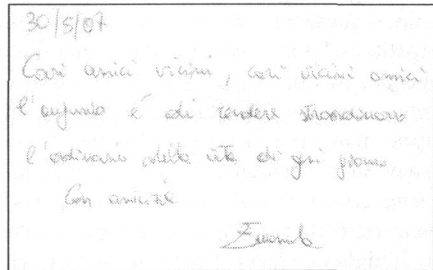 30/5/07
Cari amici vicini, cari vicini amici
l'augurio é di rendere straordinario
l'ordinario della vita di ogni giorno
Con amicizia